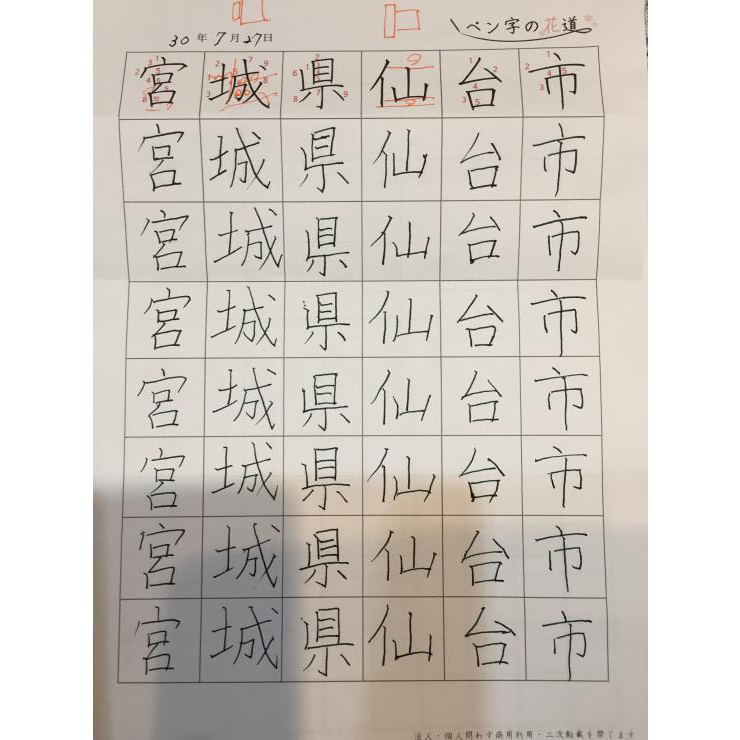 30年7月27日
ペン字の花道
宮城県仙台市
宮城県仙台市
宮城県仙台市
宮城県仙台市
宮城県仙台市
宮城県仙台市
宮城県仙台市
宮城県仙台市
法人・個人問わず商用利用・二次転載を禁じます